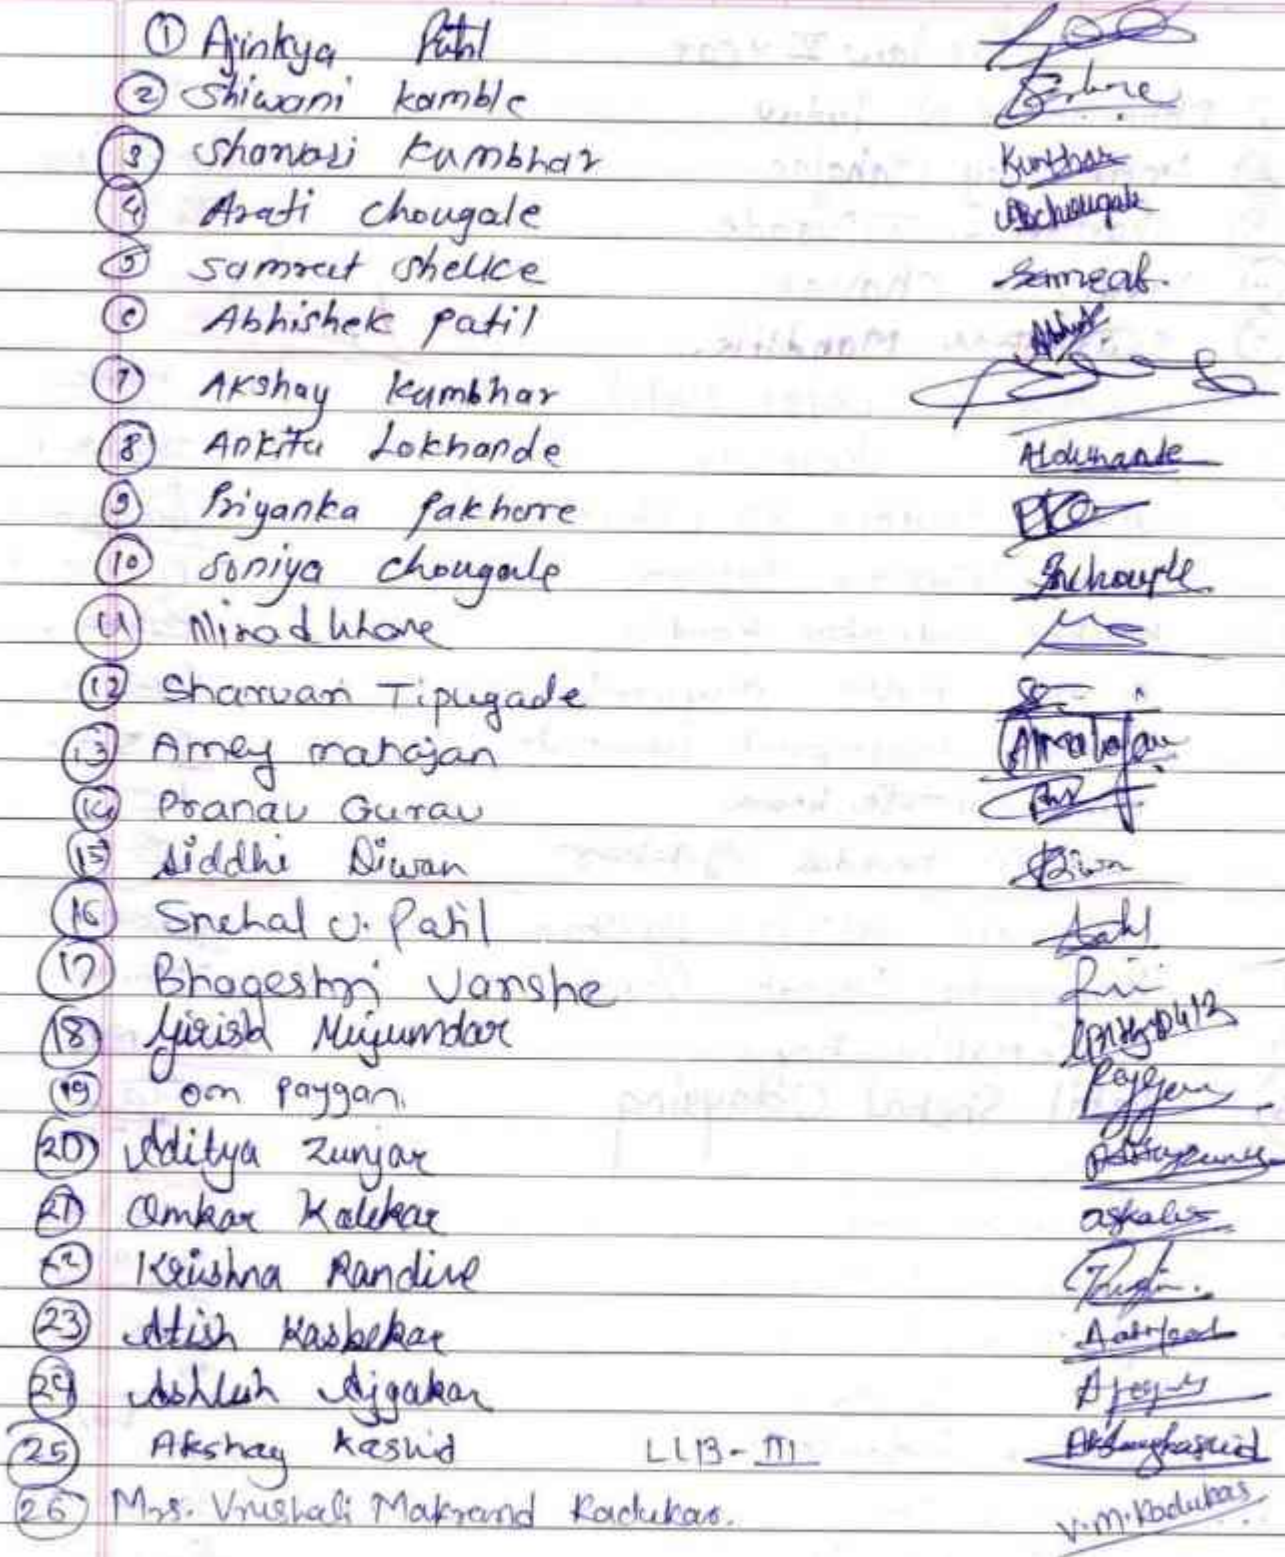 ① Ajinkya Patil
② Shiwani kamble
③ Sharvari Kumbhar Kumbhar
④ Arati chougale Abchougale
⑤ samrat shelke Samrat.
⑥ Abhishek patil
⑦ Akshay Kumbhar
⑧ Ankita Lokhande ALokhande
⑨ Priyanka Pakhare
⑩ Soniya chougale
⑪ khare
⑫ Sharvari Tipugade
⑬ Amey mahajan Amahajan
⑭ Pranav Gurav
⑮ Siddhi Diwan Diwan
⑯ Snehal U. Patil Patil
⑰ Bhageshri Varshe
⑱ Girish Mujumdar
⑲ om Paygan. Paygan
⑳ Aditya Zunjar
㉑ Omkar Kalekar
㉒ Krishna Randive
㉓ Atish Kasbekar
㉔ Ashlesh Ajgakar
㉕ Akshay Kashid LLB-III Akshaykashid
㉖ Mrs. Vrushali Makrand Kadukar. V.M.Kadukar